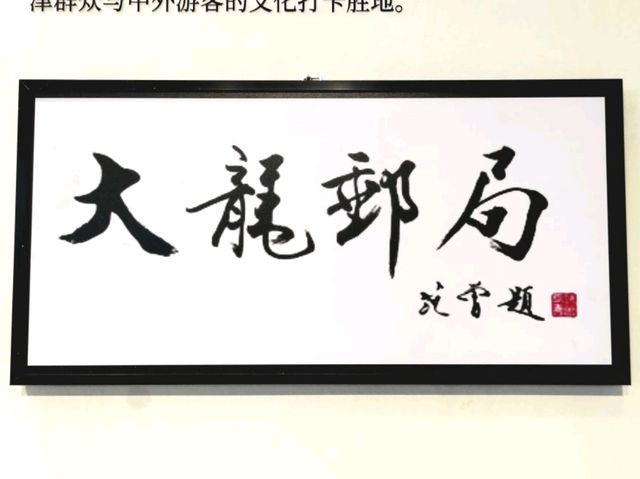 津群众与中外游客的文化打卡胜地。
大龍郵局
范曾題